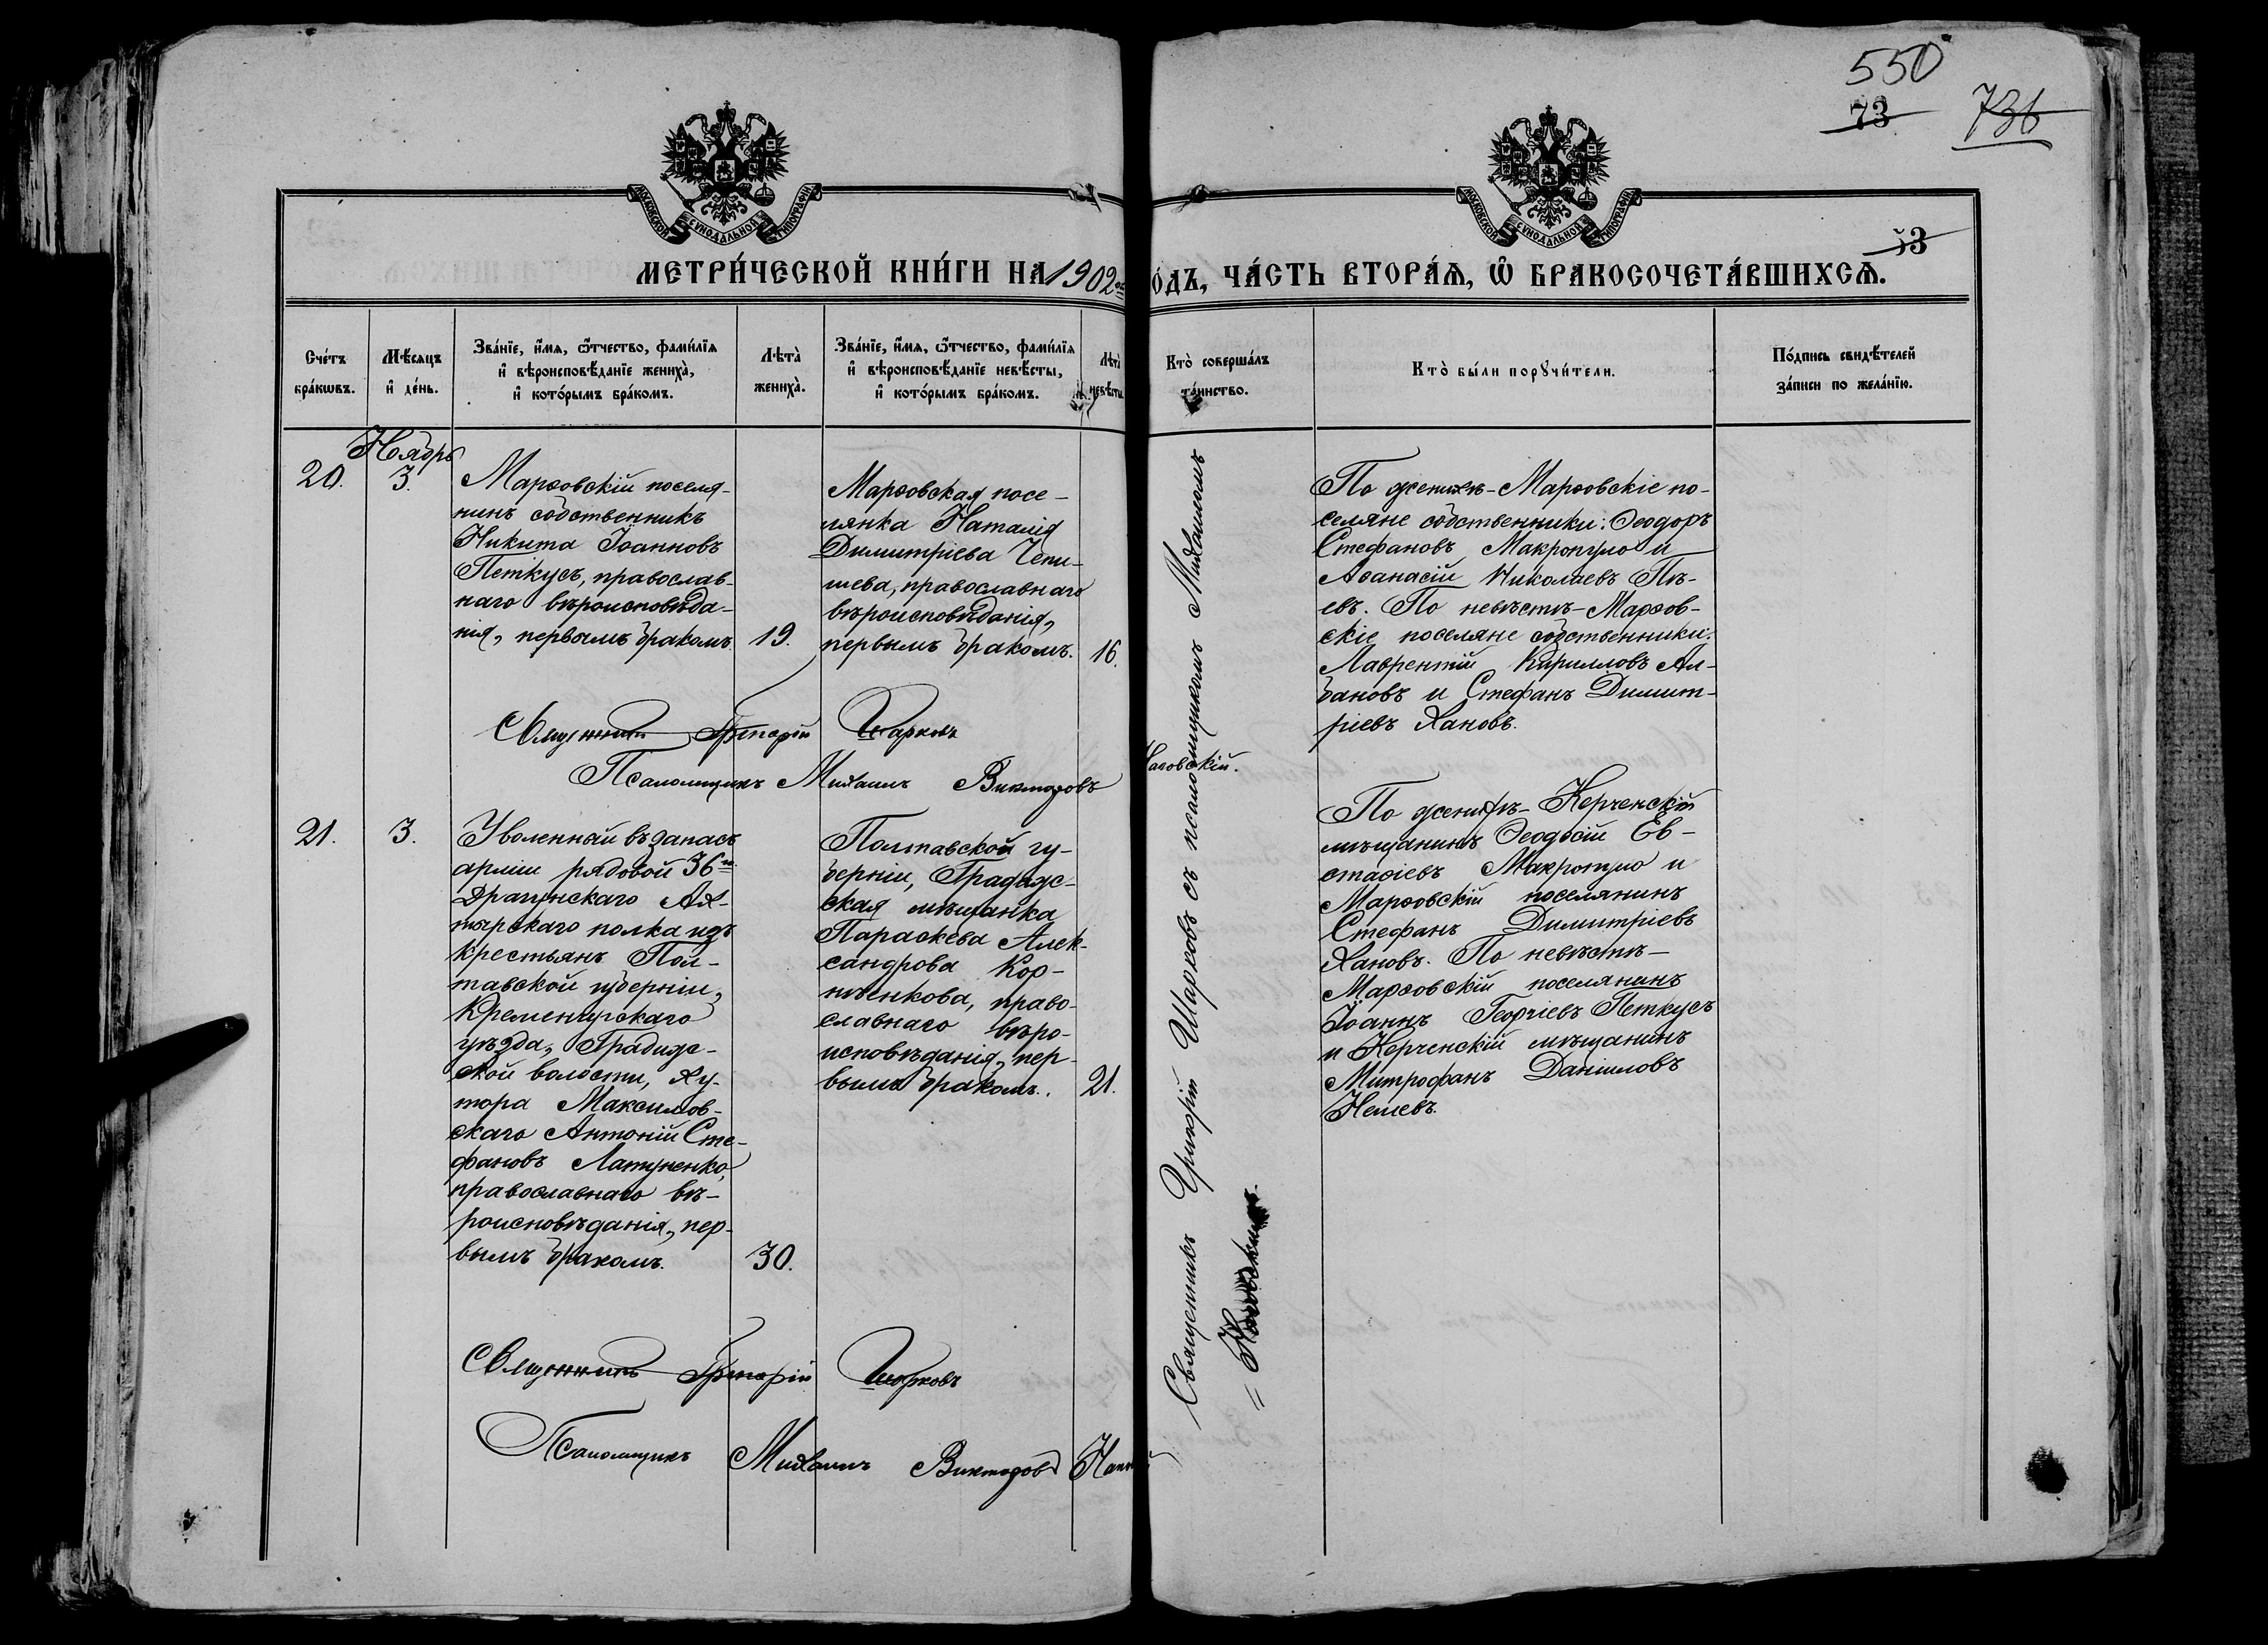 550
73 736
МОСКОВСКОЙ СѴНОДАЛЬНОЙ ТИПОГРАФІИ
МОСКОВСКОЙ СѴНОДАЛЬНОЙ ТИПОГРАФІИ
53
МЕТРИ́ЧЕСКОЙ КНИ́ГИ НА 1902 ой
О́ДЪ, ЧА́СТЬ ВТОРА́Ѧ, Ѽ БРАКОСОЧЕТА́ВШИХСѦ.
Сче́тъ
бра́кѡвъ.
Мѣ́сѧцъ
и҆ де́нь.
Зва́нїе, и҆́мѧ, ѻ҆́тчество, фами́лїѧ
и҆ вѣроисповѣ́данїе жениха̀,
и҆ кото́рымъ бра́комъ.
Лѣта̀
жениха̀.
Зва́нїе, и҆́мѧ, ѻ҆́тчество, фами́лїѧ
и҆ вѣроисповѣ́данїе невѣ́сты,
и҆ кото́рымъ бра́комъ.
Лѣта̀
невѣ́сты
Кто̀ соверша́лъ
та́инство.
Кто̀ бы́ли порꙋчи́тели.
По́дпись свидѣ́телей
за́писи по жела́нїю.
Ноябрь
20.
3.
Марѳовскій поселя-
нинъ собственникъ
Никита Іоанновъ
Петкусъ, православ-
наго вѣроисповѣда-
нія, первымъ бракомъ.
19.
Марѳовская посе-
лянка Наталія
Димитріева Чепи-
шева, православнаго
вѣроисповѣданія,
первымъ бракомъ.
16.
Священникъ Григорій Шарковъ съ псаломщикомъ Михаиломъ
По женихѣ - Марѳовскіе по-
селяне собственники: Ѳеодоръ
Стефановъ Макропуло и
Аѳанасій Николаевъ Пѣ-
евъ. По невѣстѣ - Марѳов-
скіе поселяне собственники:
Лаврентій Кирилловъ Ал-
бановъ и Стефанъ Димит-
ріевъ Хановъ.
Священникъ Григорій Шарковъ
Псаломщикъ Михаилъ Викторовъ
21.
3.
Уволенный въ запасъ
арміи рядовой 36го
Драгунскаго Ах-
тырскаго полка изъ
крестьянъ Пол-
тавской губерніи,
Кременчугскаго
уѣзда, Градиж-
ской волости, ху-
тора Максимов-
скаго Антоній Сте-
фановъ Латуненко,
православнаго вѣ-
роисповѣданія, пер-
вымъ бракомъ.
30.
Полтавской гу-
берніи, Градиж-
ская мѣщанка
Параскева Алек-
сандрова Кор-
нѣенкова, право-
славнаго вѣро-
исповѣданія, пер-
вымъ бракомъ.
21.
По женихѣ - Керченскій
мѣщанинъ Ѳеодосій Ев-
стаѳіевъ Макропуло и
Марѳовскій поселянинъ
Стефанъ Димитріевъ
Хановъ. По невѣстѣ -
Марѳовскій поселянинъ
Іоаннъ Георгіевъ Петкусъ
и Керченскій мѣщанинъ
Митрофанъ Даніиловъ
Нешевъ.
Священникъ Григорій Шарковъ
Псаломщикъ Михаилъ Викторовъ